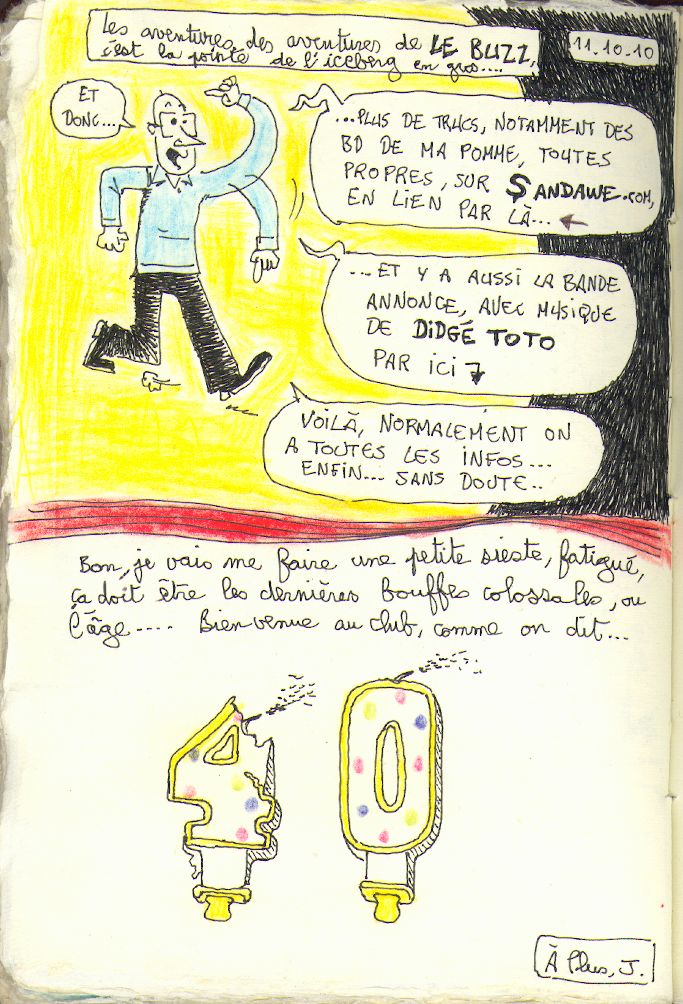 Les aventures des aventures de LE BUZZ,
c'est la pointe de l'iceberg en gros....
11.10.10
ET
DONC...
...PLUS DE TRUCS, NOTAMMENT DES
BD DE MA POMME, TOUTES
PROPRES, SUR ŞANDAWE.COM,
EN LIEN PAR LÀ...
...ET Y A AUSSI LA BANDE
ANNONCE, AVEC MUSIQUE
DE DIDGÉ TOTO
PAR ICI
VOILÀ, NORMALEMENT ON
A TOUTES LES INFOS...
ENFIN... SANS DOUTE..
Bon, je vais me faire une petite sieste, fatigué,
ça doit être les dernières bouffes colossales, ou
l'âge.... Bienvenue au club, comme on dit...
40
À Plus, J.